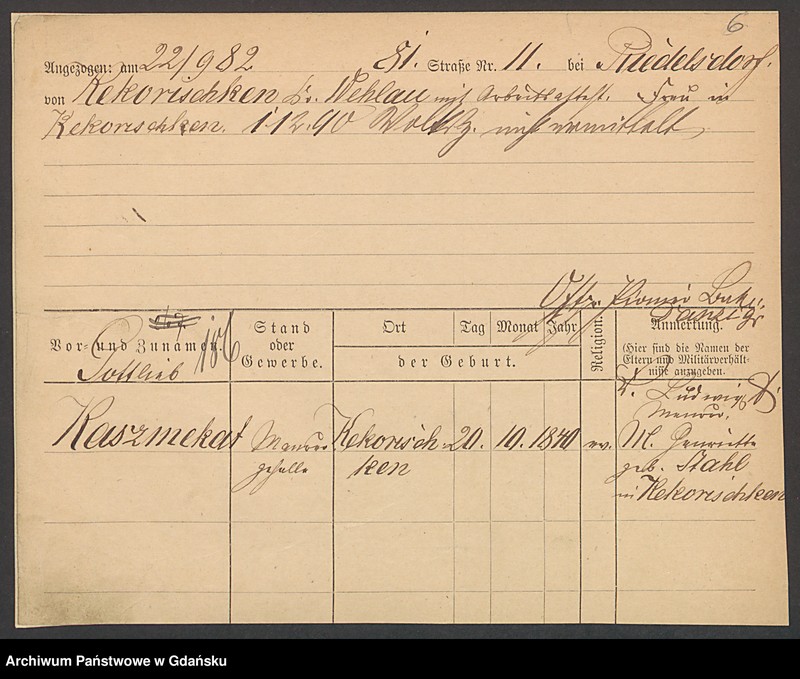 6
Angezogen: am 22/9 82 Straße Nr. 11. bei Riedelsdorf.
von Kekorischken Kr. Wehlau mit Arbeitsattest. Frau in
Kekorischken. 1 12. 90 nicht ermittelt
Danzig
Vor- und Zunamen. Stand oder Gewerbe. Ort Tag Monat Jahr der Geburt. Religion. Anmerkung.
(Hier sind die Namen der Eltern und Militärverhältnisse anzugeben.
Gottlieb
Kaszmekat Maurer Kekorisch- 20. 10. 1840 ev.
geselle ken
V. Ludwig
Maurer,
M. Henriette
geb. Stahl
in Kekorischken
Archiwum Państwowe w Gdańsku